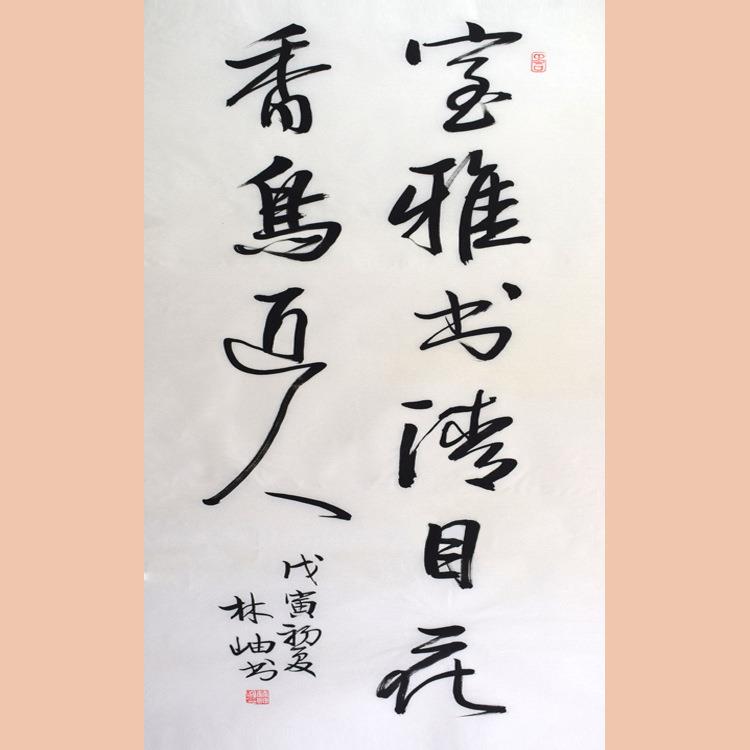 室雅书清目花
香鸟近人
戊寅初夏
林岫书